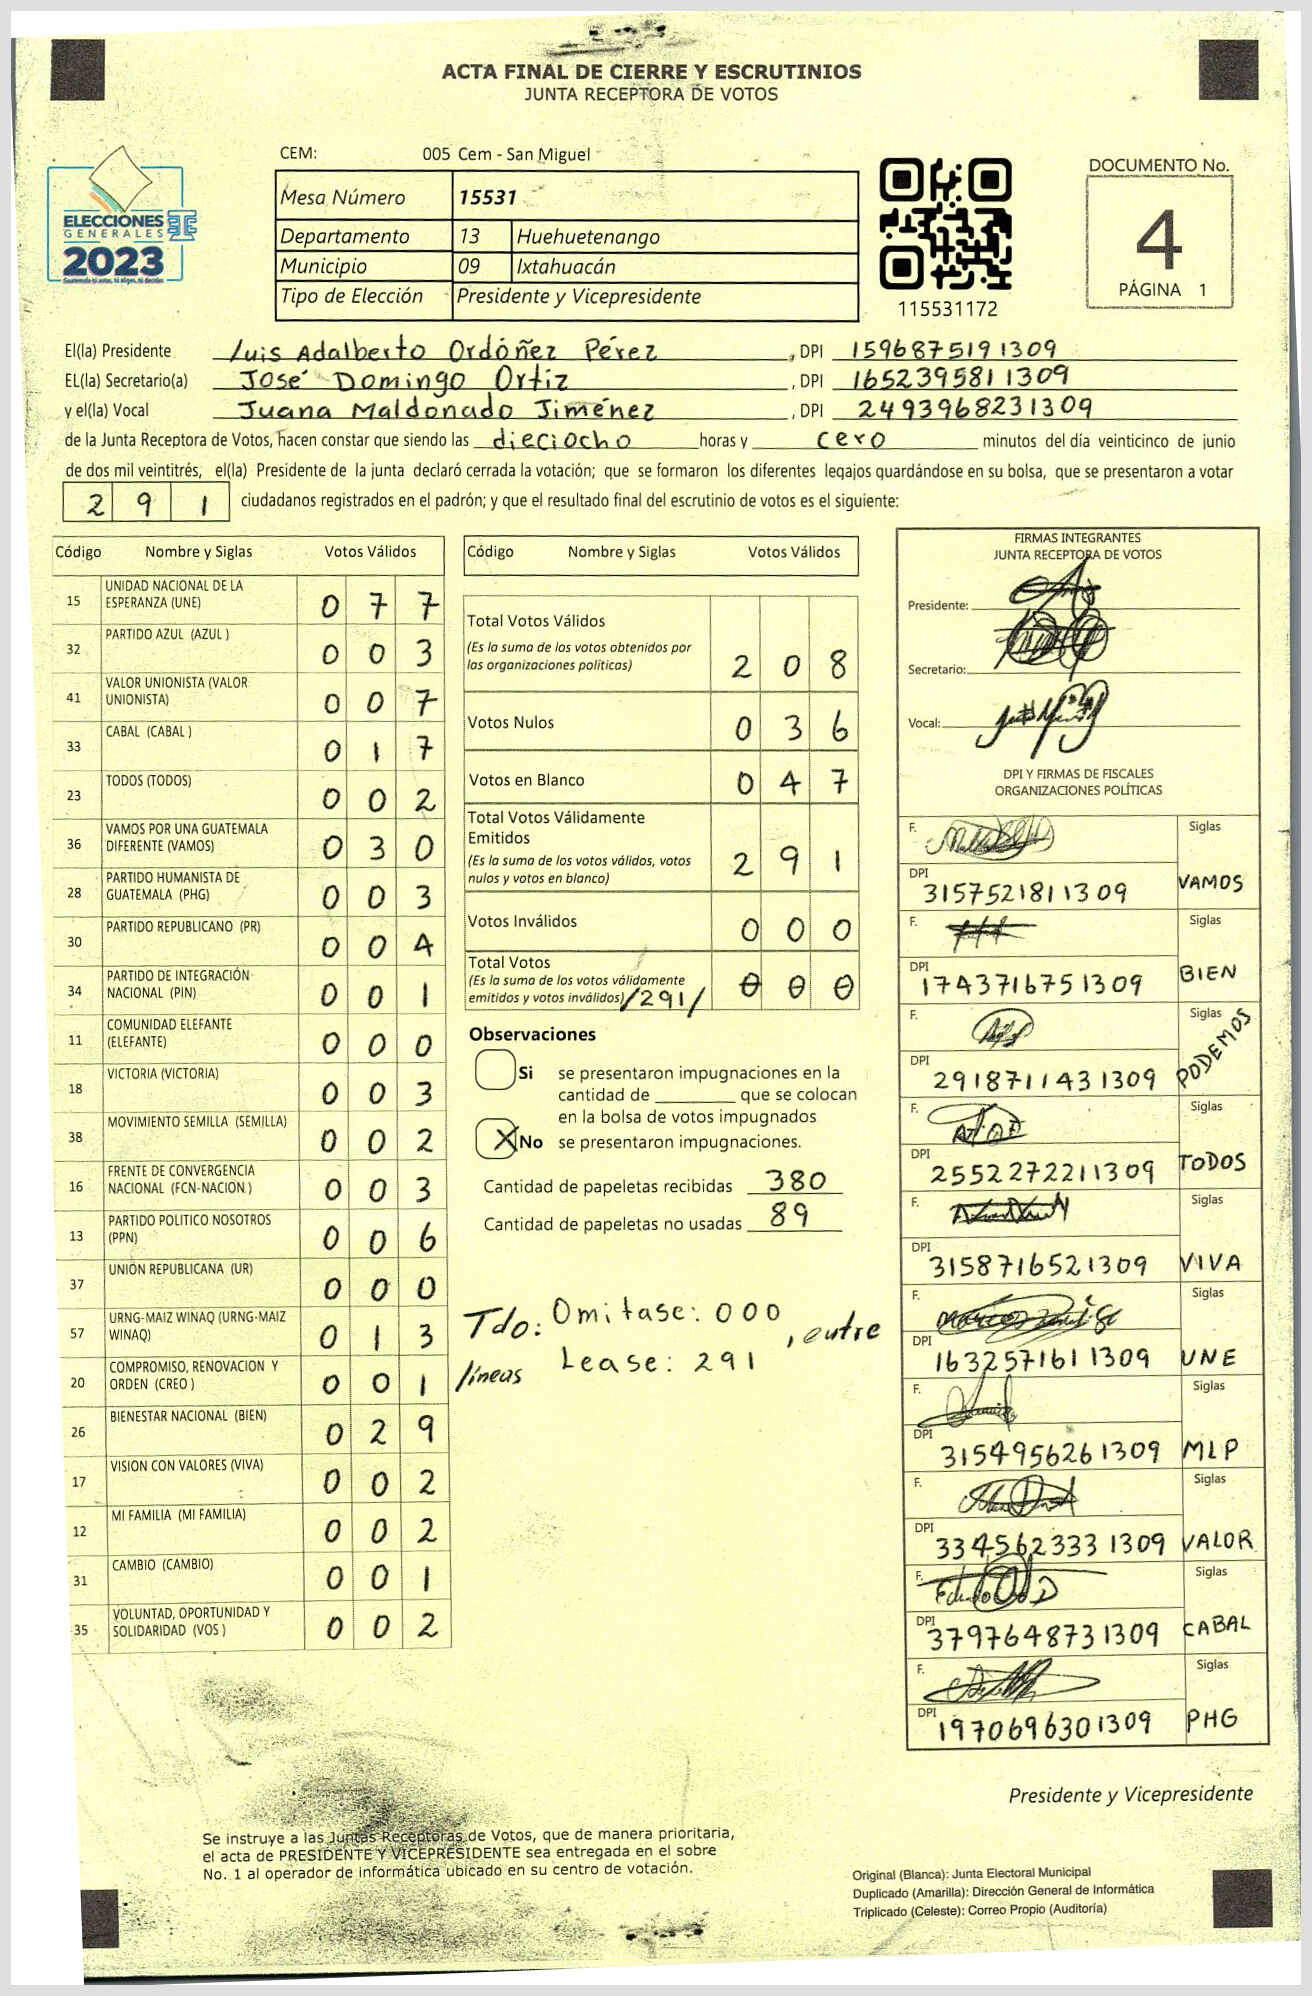 ACTA FINAL DE CIERRE Y ESCRUTINIOS
JUNTA RECEPTORA DE VOTOS
CEM: 005 Cem - San Miguel
Mesa Número 15531
Departamento 13 Huehuetenango
Municipio 09 Ixtahuacán
Tipo de Elección Presidente y Vicepresidente
ELECCIONES
GENERALES
2023
115531172
DOCUMENTO No.
4
PÁGINA 1
El(la) Presidente Luis Adalberto Ordóñez Pérez, DPI 1596875191309
EL(la) Secretario(a) José Domingo Ortiz, DPI 1652395811309
y el(la) Vocal Juana Maldonado Jiménez, DPI 2493968231309
de la Junta Receptora de Votos, hacen constar que siendo las dieciocho horas y cero minutos del día veinticinco de junio
de dos mil veintitrés, el(la) Presidente de la junta declaró cerrada la votación; que se formaron los diferentes legajos quardándose en su bolsa, que se presentaron a votar
291 ciudadanos registrados en el padrón; y que el resultado final del escrutinio de votos es el siguiente:
Código Nombre y Siglas Votos Válidos
15 UNIDAD NACIONAL DE LA
ESPERANZA (UNE) 0 7 7
32 PARTIDO AZUL (AZUL ) 0 0 3
41 VALOR UNIONISTA (VALOR
UNIONISTA) 0 0 7
33 CABAL (CABAL ) 0 1 7
23 TODOS (TODOS) 0 0 2
36 VAMOS POR UNA GUATEMALA
DIFERENTE (VAMOS) 0 3 0
28 PARTIDO HUMANISTA DE
GUATEMALA (PHG) 0 0 3
30 PARTIDO REPUBLICANO (PR) 0 0 4
34 PARTIDO DE INTEGRACIÓN
NACIONAL (PIN) 0 0 1
11 COMUNIDAD ELEFANTE
(ELEFANTE) 0 0 0
18 VICTORIA (VICTORIA) 0 0 3
38 MOVIMIENTO SEMILLA (SEMILLA) 0 0 2
16 FRENTE DE CONVERGENCIA
NACIONAL (FCN-NACION ) 0 0 3
13 PARTIDO POLITICO NOSOTROS
(PPN) 0 0 6
37 UNIÓN REPUBLICANA (UR) 0 0 0
57 URNG-MAIZ WINAQ (URNG-MAIZ
WINAQ) 0 1 3
20 COMPROMISO, RENOVACION Y
ORDEN (CREO ) 0 0 1
26 BIENESTAR NACIONAL (BIEN) 0 2 9
17 VISION CON VALORES (VIVA) 0 0 2
12 MI FAMILIA (MI FAMILIA) 0 0 2
31 CAMBIO (CAMBIO) 0 0 1
35 VOLUNTAD, OPORTUNIDAD Y
SOLIDARIDAD (VOS ) 0 0 2
Código Nombre y Siglas Votos Válidos
Total Votos Válidos
(Es la suma de los votos obtenidos por
las organizaciones políticas) 2 0 8
Votos Nulos 0 3 6
Votos en Blanco 0 4 7
Total Votos Válidamente
Emitidos
(Es la suma de los votos válidos, votos
nulos y votos en blanco) 2 9 1
Votos Inválidos 0 0 0
Total Votos
(Es la suma de los votos válidamente
emitidos y votos inválidos) /291/ 0 0 0
Observaciones
Si se presentaron impugnaciones en la
cantidad de ________ que se colocan
en la bolsa de votos impugnados
X No se presentaron impugnaciones.
Cantidad de papeletas recibidas 380
Cantidad de papeletas no usadas 89
Tdo: Omitase: 000, entre
líneas Lease: 291
FIRMAS INTEGRANTES
JUNTA RECEPTORA DE VOTOS
Presidente:
Secretario:
Vocal:
DPI Y FIRMAS DE FISCALES
ORGANIZACIONES POLÍTICAS
F. Siglas
DPI 3157521811309 VAMOS
F. Siglas
DPI 1743716751309 BIEN
F. Siglas
DPI 2918711431309 PODEMOS
F. Siglas
DPI 2552272211309 TODOS
F. Siglas
DPI 3158716521309 VIVA
F. Siglas
DPI 1632571611309 UNE
F. Siglas
DPI 3154956261309 MLP
F. Siglas
DPI 3345623331309 VALOR
F. Siglas
DPI 3797648731309 CABAL
F. Siglas
DPI 1970696301309 PHG
Presidente y Vicepresidente
Se instruye a las Juntas Receptoras de Votos, que de manera prioritaria,
el acta de PRESIDENTE Y VICEPRESIDENTE sea entregada en el sobre
No. 1 al operador de informática ubicado en su centro de votación.
Original (Blanca): Junta Electoral Municipal
Duplicado (Amarilla): Dirección General de Informática
Triplicado (Celeste): Correo Propio (Auditoría)